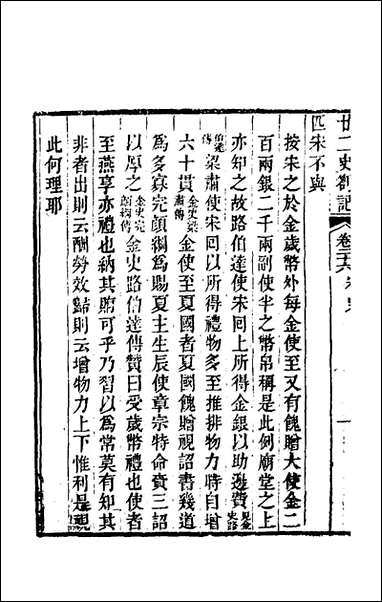 廿二史劄記 卷二十六 宋史 一
匹宋不與
按宋之於金歲幣外每金使至又有餽贈大使金二
百兩銀二千兩副使半之幣帛稱是此例廟堂之上
亦知之故路伯達使宋回上所得金銀以助邊費見金史路
伯達傳梁肅使宋回以所得禮物多至推排物力時自增
六十貫金史梁肅傳金使至夏國者夏國餽贈視詔書幾道
為多寡完顏綱為賜夏主生辰使章宗特命賚三詔
以厚之金史完顏綱傳金史路伯達傳贊曰受歲幣禮也使者
至燕享亦禮也納其賄可乎乃習以為常莫有知其
非者出則云酬勞效歸則云增物力上下惟利是視
此何理耶